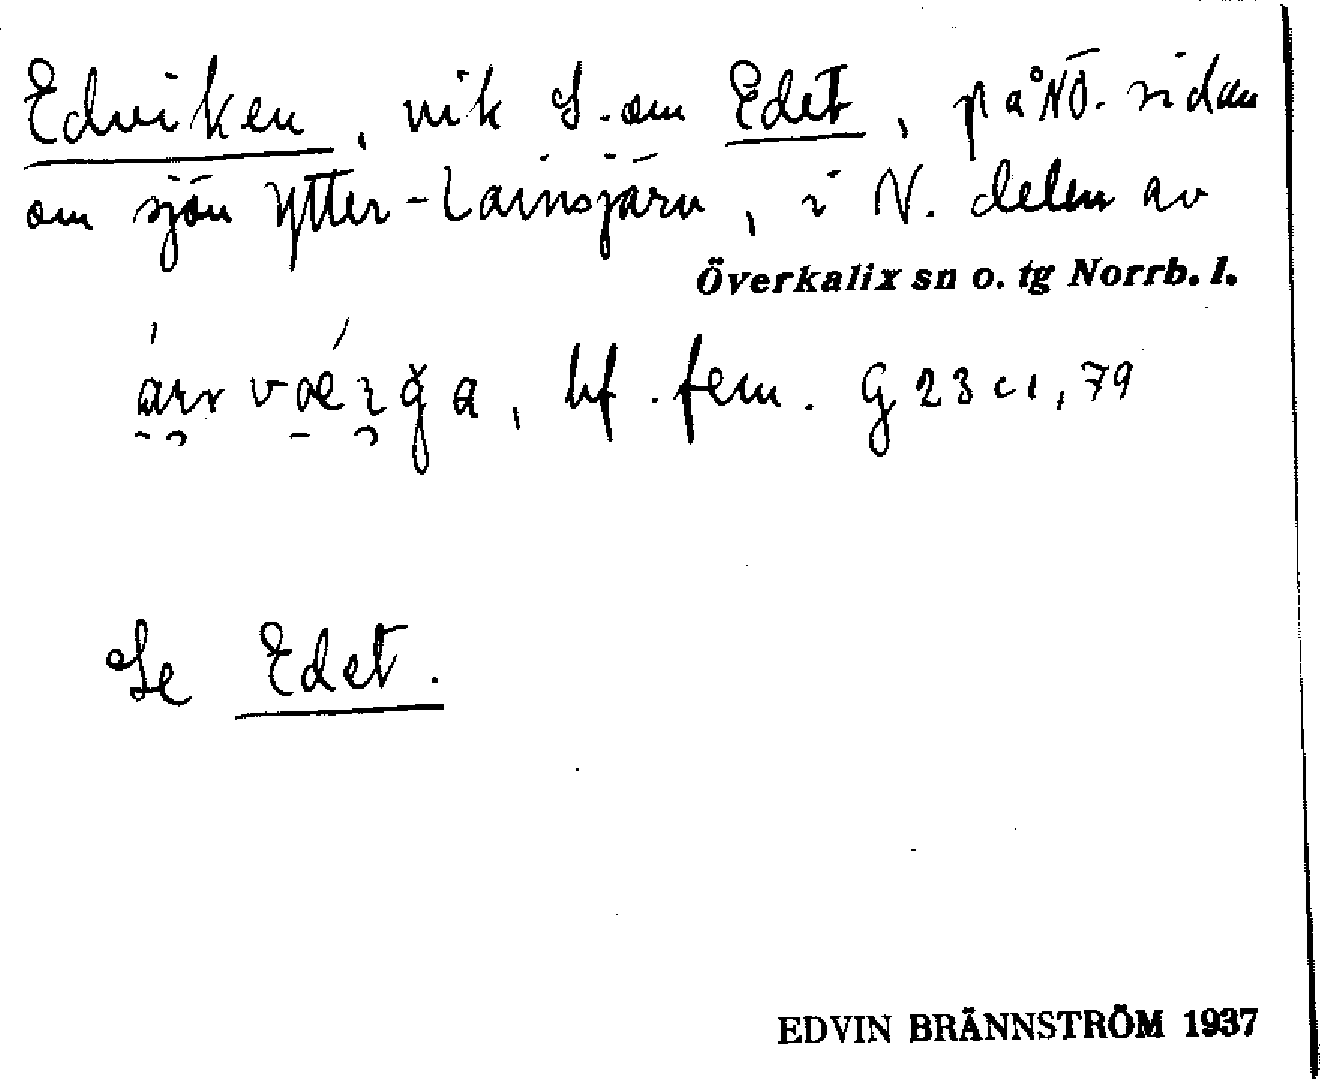 Edviken, vik S. om Edet, på NÖ. sidan
om sjön Ytter-Lainsjärv, i N. delen av
Överkalix sn o. tg Norrb. l.
bf. fem. G 23 c1, 79
Se Edet.
EDVIN BRÄNNSTRÖM 1937